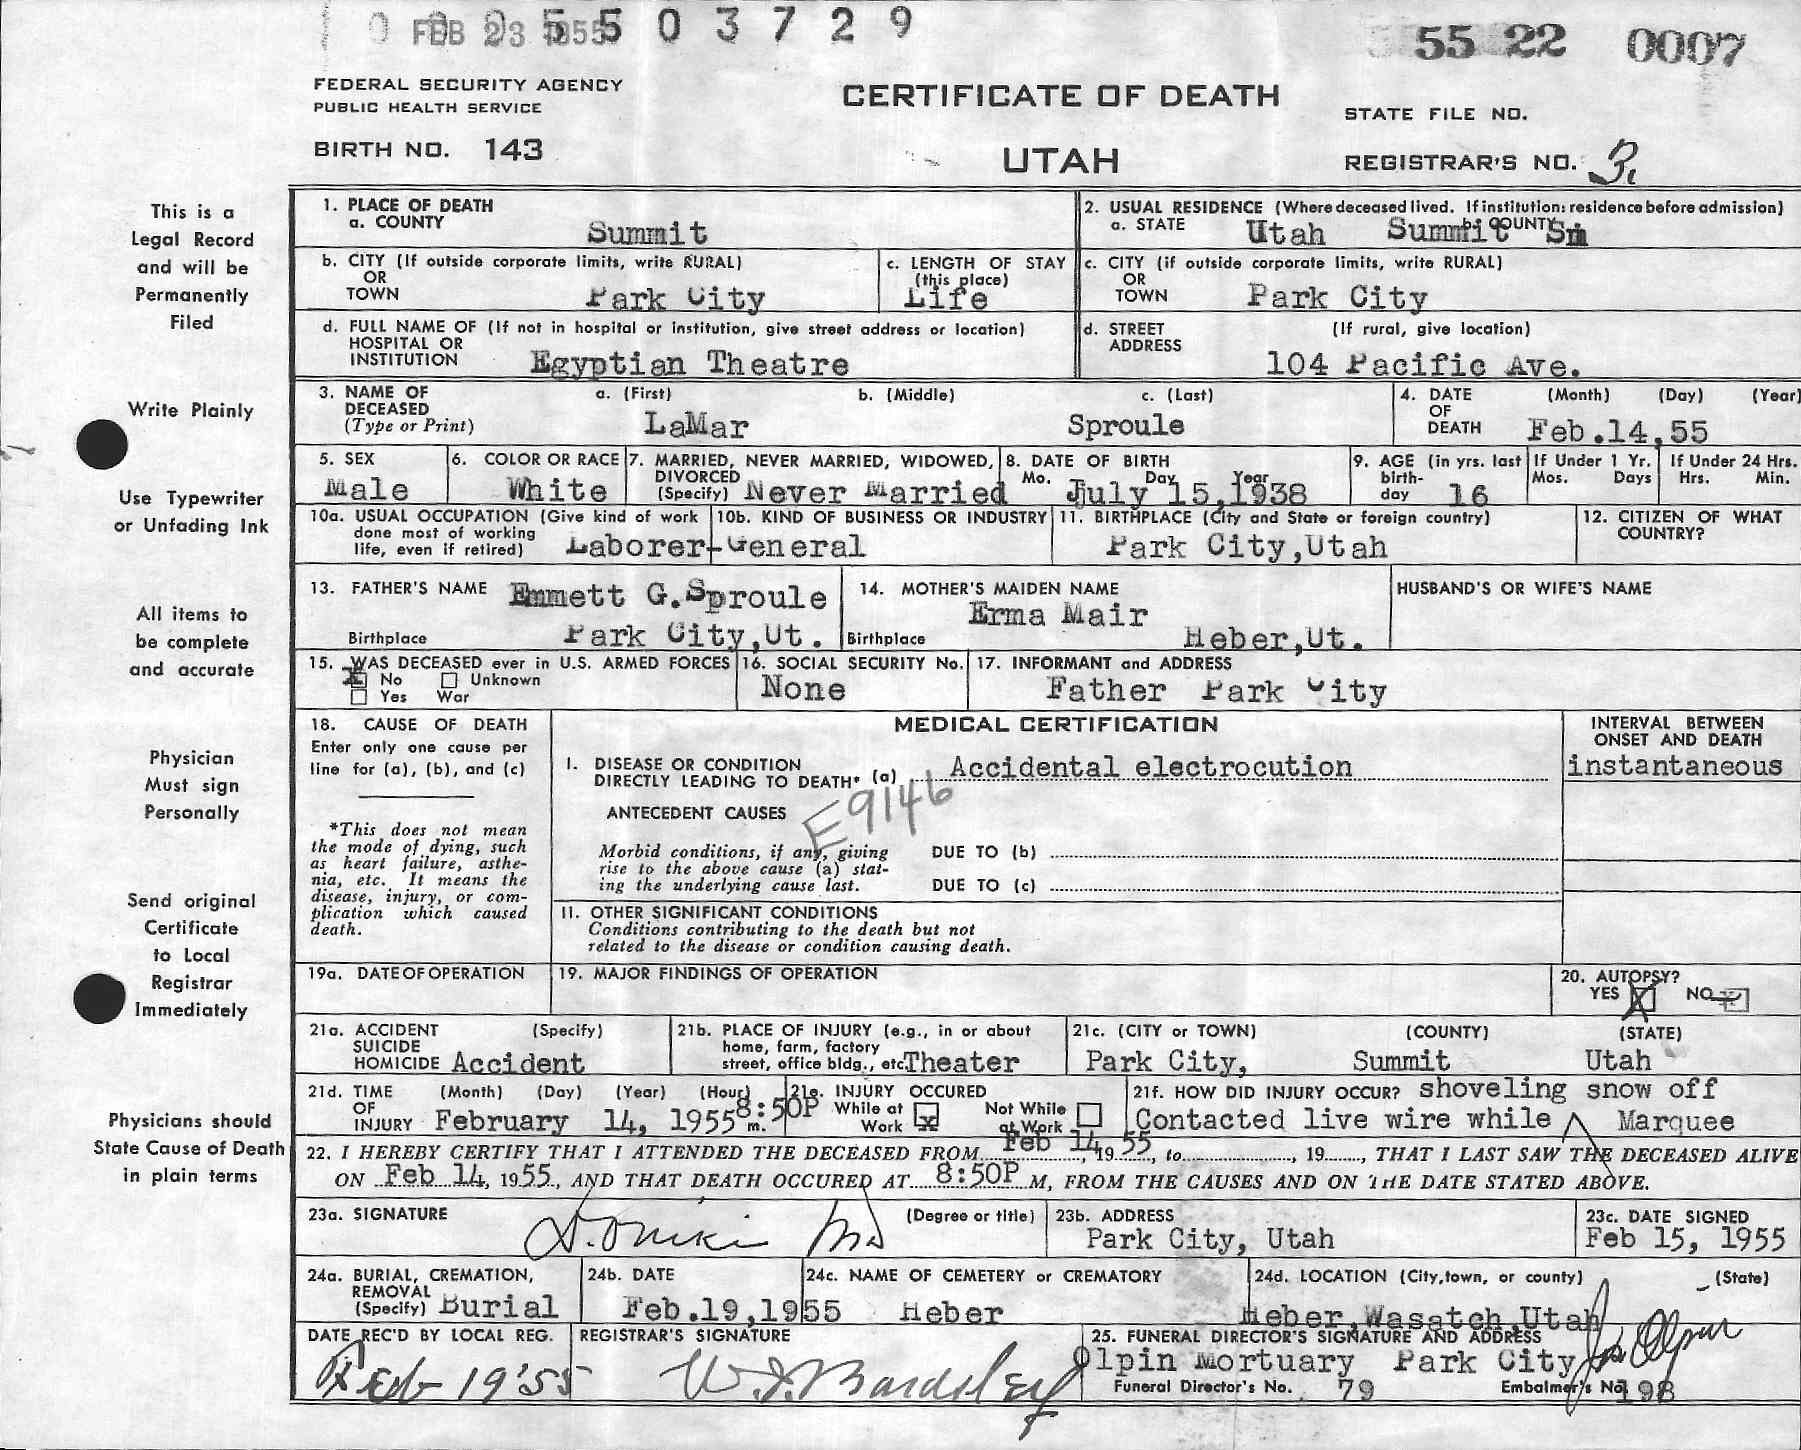 FEB 23 1955 5 5 0 3 7 2 9
55 22 0007
FEDERAL SECURITY AGENCY
PUBLIC HEALTH SERVICE
BIRTH NO. 143
CERTIFICATE OF DEATH
UTAH
STATE FILE NO.
REGISTRAR'S NO. 3.
This is a
Legal Record
and will be
Permanently
Filed
Write Plainly
Use Typewriter
or Unfading Ink
All items to
be complete
and accurate
Physician
Must sign
Personally
Send original
Certificate
to Local
Registrar
Immediately
Physicians should
State Cause of Death
in plain terms
1. PLACE OF DEATH
a. COUNTY Summit
2. USUAL RESIDENCE (Where deceased lived. If institution: residence before admission)
a. STATE Utah b. COUNTY Summit
b. CITY (If outside corporate limits, write RURAL)
OR
TOWN Park City
c. LENGTH OF STAY
(this place)
Life
c. CITY (if outside corporate limits, write RURAL)
OR
TOWN Park City
d. FULL NAME OF (If not in hospital or institution, give street address or location)
HOSPITAL OR
INSTITUTION Egyptian Theatre
d. STREET (If rural, give location)
ADDRESS
104 Pacific Ave.
3. NAME OF a. (First) b. (Middle) c. (Last)
DECEASED
(Type or Print) LaMar Sproule
4. DATE (Month) (Day) (Year)
OF
DEATH Feb.14,55
5. SEX
Male
6. COLOR OR RACE
White
7. MARRIED, NEVER MARRIED, WIDOWED,
DIVORCED
(Specify) Never Married
8. DATE OF BIRTH
Mo. Day Year
July 15,1938
9. AGE (in yrs. last
birth-
day 16
If Under 1 Yr.
Mos. Days
If Under 24 Hrs.
Hrs. Min.
10a. USUAL OCCUPATION (Give kind of work
done most of working
life, even if retired) Laborer-General
10b. KIND OF BUSINESS OR INDUSTRY
11. BIRTHPLACE (City and State or foreign country)
Park City,Utah
12. CITIZEN OF WHAT
COUNTRY?
13. FATHER'S NAME Emmett G.Sproule
Birthplace Park City,Ut.
14. MOTHER'S MAIDEN NAME
Erma Mair
Birthplace Heber,Ut.
HUSBAND'S OR WIFE'S NAME
15. WAS DECEASED ever in U.S. ARMED FORCES
No Unknown
Yes War
16. SOCIAL SECURITY No.
None
17. INFORMANT and ADDRESS
Father Park City
18. CAUSE OF DEATH
Enter only one cause per
line for (a), (b), and (c)
*This does not mean
the mode of dying, such
as heart failure, asthe-
nia, etc. It means the
disease, injury, or com-
plication which caused
death.
MEDICAL CERTIFICATION
I. DISEASE OR CONDITION
DIRECTLY LEADING TO DEATH* (a) Accidental electrocution
E9146
ANTECEDENT CAUSES
Morbid conditions, if any, giving
rise to the above cause (a) stat-
ing the underlying cause last.
DUE TO (b)
DUE TO (c)
II. OTHER SIGNIFICANT CONDITIONS
Conditions contributing to the death but not
related to the disease or condition causing death.
INTERVAL BETWEEN
ONSET AND DEATH
instantaneous
19a. DATE OF OPERATION
19. MAJOR FINDINGS OF OPERATION
20. AUTOPSY?
YES X NO
21a. ACCIDENT (Specify)
SUICIDE
HOMICIDE Accident
21b. PLACE OF INJURY (e.g., in or about
home, farm, factory
street, office bldg., etc. Theater
21c. (CITY or TOWN) (COUNTY) (STATE)
Park City, Summit Utah
21d. TIME (Month) (Day) (Year) (Hour)
OF
INJURY February 14, 1955 8:50P m.
21e. INJURY OCCURED
While at Work x Not While at Work
21f. HOW DID INJURY OCCUR? shoveling snow off
Contacted live wire while Marquee
22. I HEREBY CERTIFY THAT I ATTENDED THE DECEASED FROM Feb 14, 1955, to , 19 , THAT I LAST SAW THE DECEASED ALIVE
ON Feb 14, 1955, AND THAT DEATH OCCURED AT 8:50P M, FROM THE CAUSES AND ON THE DATE STATED ABOVE.
23a. SIGNATURE (Degree or title)
MD
23b. ADDRESS
Park City, Utah
23c. DATE SIGNED
Feb 15, 1955
24a. BURIAL, CREMATION,
REMOVAL
(Specify) Burial
24b. DATE
Feb.19,1955
24c. NAME OF CEMETERY or CREMATORY
Heber
24d. LOCATION (City,town, or county) (State)
Heber,Wasatch,Utah
DATE REC'D BY LOCAL REG.
Feb 19'55
REGISTRAR'S SIGNATURE
W.J. Bardsley
25. FUNERAL DIRECTOR'S SIGNATURE AND ADDRESS
Olpin Mortuary Park City
Funeral Director's No. 79 Embalmer's No. 198